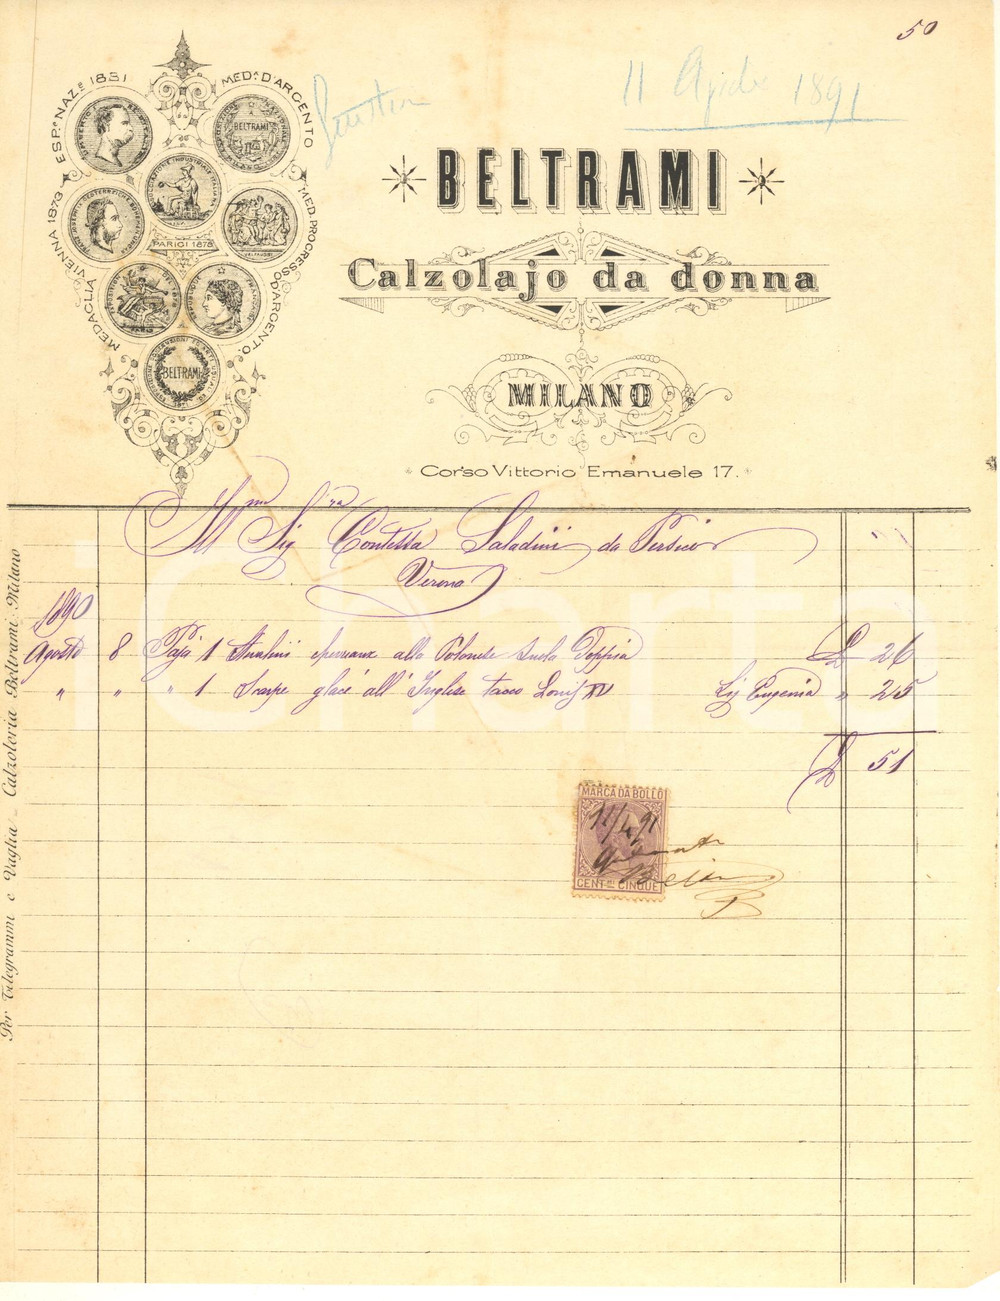 50
11 Aprile 1891
ESP.e NAZ.e 1881
MED.A D'ARGENTO
MEDAGLIA VIENNA 1873
MED. PROGRESSO D'ARGENTO.
BELTRAMI
PARIGI 1878
BELTRAMI
BELTRAMI
Calzolajo da donna
MILANO
Corso Vittorio Emanuele 17.
Ill.ma Sig.ra Contessa Saladini da Persico
Verona
1890
Agosto 8 Paja 1 Stivalini chevreaux alla Polonese suola Doppia £ 26
" " " 1 Scarpe glacé all'Inglese tacco Louis XV Sig Eugenia " 25
£ 51
MARCA DA BOLLO
11/4 91
CENT.MI CINQUE
Per Telegrammi e Vaglia - Calzoleria Beltrami Milano
iCharta